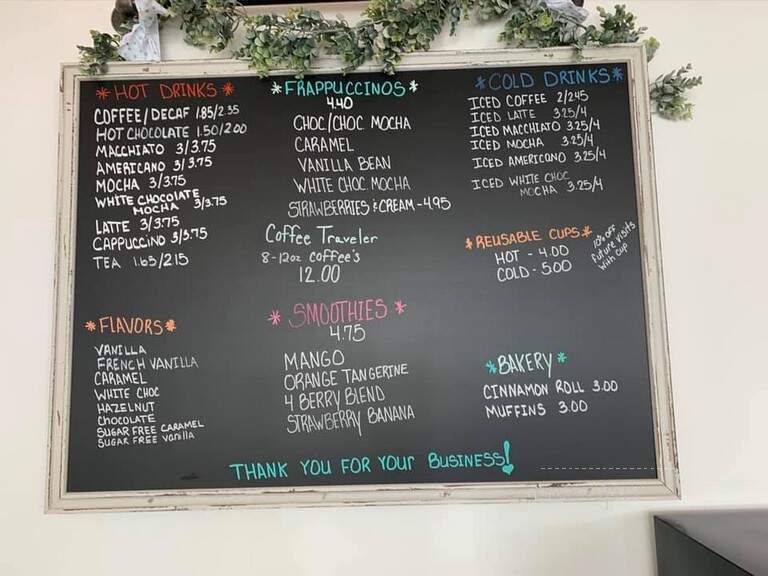 *HOT DRINKS*
COFFEE/DECAF 1.85/2.35
HOT CHOCOLATE 1.50/2.00
MACCHIATO 3/3.75
AMERICANO 3/3.75
MOCHA 3/3.75
WHITE CHOCOLATE
MOCHA 3/3.75
LATTE 3/3.75
CAPPUCCINO 3/3.75
TEA 1.65/2.15
*FLAVORS*
VANILLA
FRENCH VANILLA
CARAMEL
WHITE CHOC
HAZELNUT
CHOCOLATE
SUGAR FREE CARAMEL
SUGAR FREE Vanilla
*FRAPPUCCINOS*
4.40
CHOC./CHOC. MOCHA
CARAMEL
VANILLA BEAN
WHITE CHOC. MOCHA
STRAWBERRIES & CREAM - 4.95
Coffee Traveler
8-12oz Coffee's
12.00
*SMOOTHIES*
4.75
MANGO
ORANGE TANGERINE
4 BERRY BLEND
STRAWBERRY BANANA
*COLD DRINKS*
ICED COFFEE 2/2.45
ICED LATTE 3.25/4
ICED MACCHIATO 3.25/4
ICED MOCHA 3.25/4
ICED AMERICANO 3.25/4
ICED WHITE CHOC
MOCHA 3.25/4
*REUSABLE CUPS*
HOT - 4.00
COLD - 5.00
10% OFF
Future visits
with cup
*BAKERY*
CINNAMON ROLL 3.00
MUFFINS 3.00
THANK YOU FOR YOUR BUSINESS!